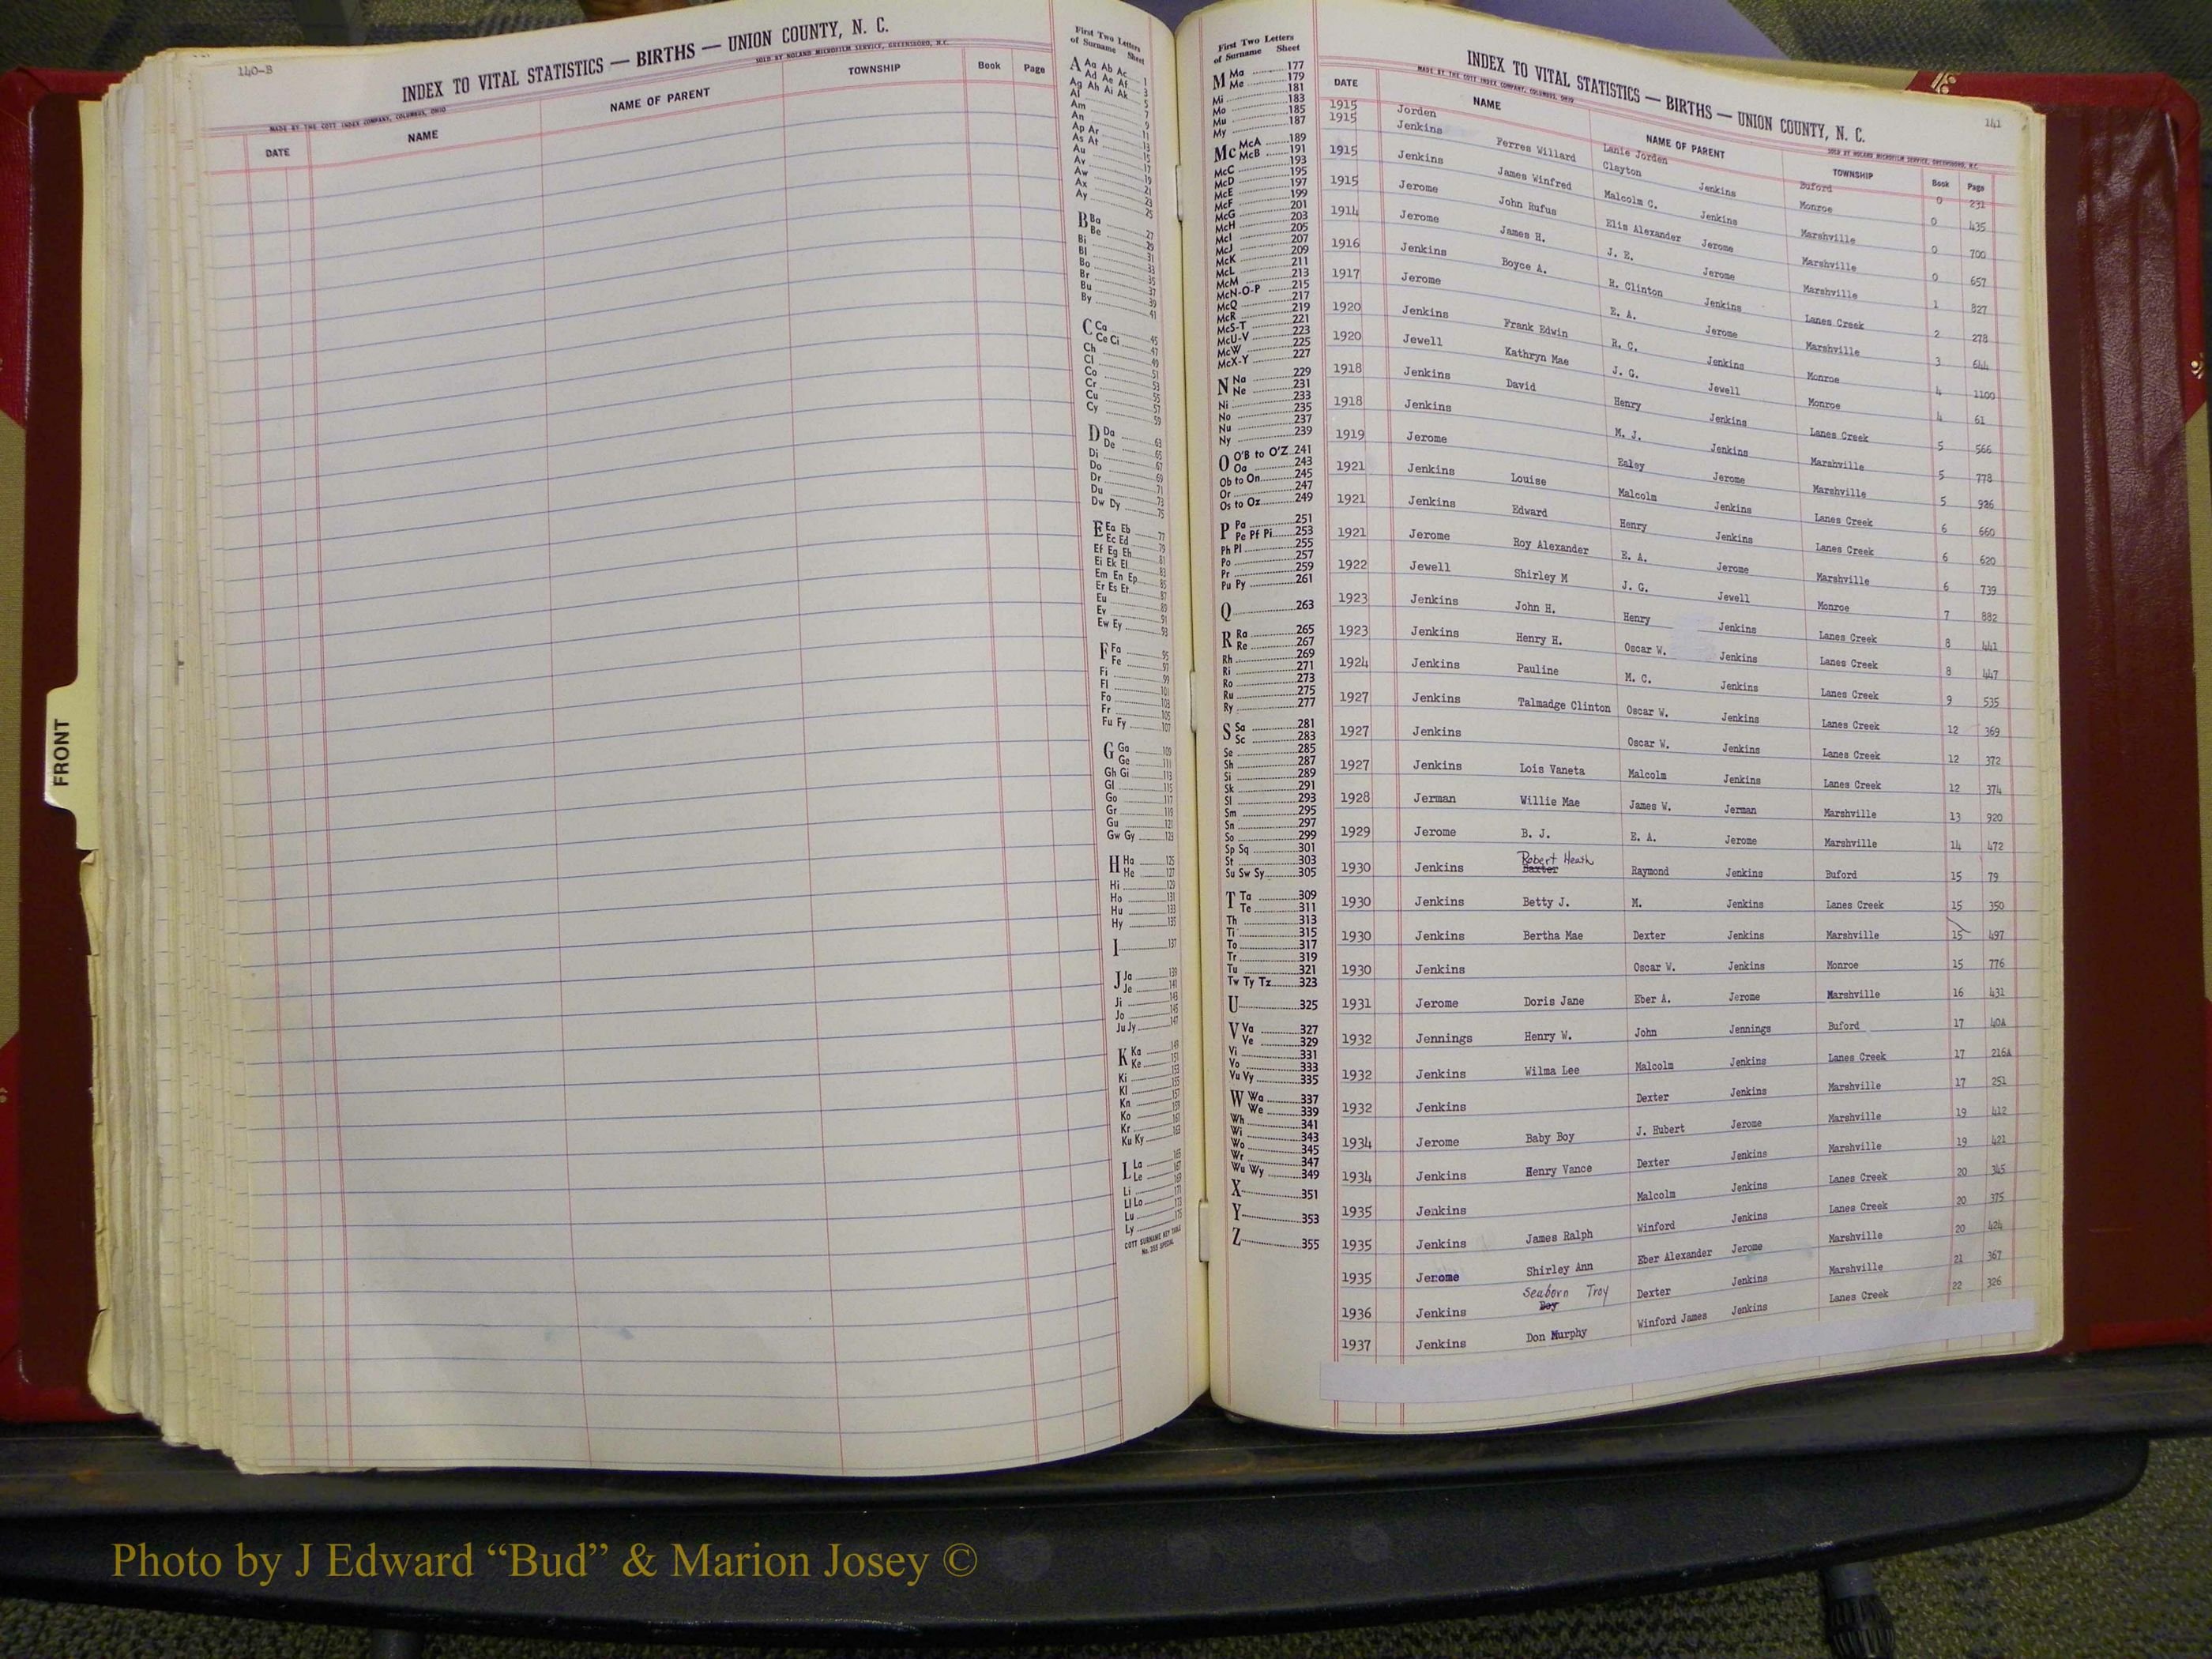 140-B
INDEX TO VITAL STATISTICS — BIRTHS — UNION COUNTY, N. C.
MADE BY THE COTT INDEX COMPANY, COLUMBUS, OHIO SOLD BY NOLAND MICROFILM SERVICE, GREENSBORO, N.C.
DATE NAME NAME OF PARENT TOWNSHIP Book Page
First Two Letters
of Surname Sheet
A Aa Ab Ac 1
Ad Ae Af 3
Ag Ah Ai Ak 5
Al 7
Am 9
An 11
Ap Ar 13
As At 15
Au 17
Av 19
Aw 21
Ax 23
Ay 25
B Ba 27
Be 29
Bi 31
Bl 33
Bo 35
Br 37
Bu 39
By 41
C Ca 45
Ce Ci 47
Ch 49
Cl 51
Co 53
Cr 55
Cu 57
Cy 59
D Da 63
De 65
Di 67
Do 69
Dr 71
Du 73
Dw Dy 75
E Ea Eb 77
Ec Ed 79
Ef Eg Eh 81
Ei Ek El 83
Em En Ep 85
Er Es Et 87
Eu 89
Ev 91
Ew Ey 93
F Fa 95
Fe 97
Fi 99
Fl 101
Fo 103
Fr 105
Fu Fy 107
G Ga 109
Ge 111
Gh Gi 113
Gl 115
Go 117
Gr 119
Gu 121
Gw Gy 123
H Ha 125
He 127
Hi 129
Ho 131
Hu 133
Hy 135
I 137
J Ja 139
Je 141
Ji 143
Jo 145
Ju Jy 147
K Ka 149
Ke 151
Ki 153
Kl 155
Kn 157
Ko 159
Kr 161
Ku Ky 163
L La 165
Le 167
Li 171
Ll Lo 173
Lu 175
Ly
COTT SURNAME KEY TABLE
No. 355 SPECIAL
FRONT
First Two Letters
of Surname Sheet
M Ma 177
Me 179
Mi 181
Mo 183
Mu 185
My 187
Mc McA 189
McB 191
McC 193
McD 195
McE 197
McF 199
McG 201
McH 203
McI 205
McJ 207
McK 209
McL 211
McM 213
McN-O-P 215
McQ 217
McR 219
McS-T 221
McU-V 223
McW 225
McX-Y 227
N Na 229
Ne 231
Ni 233
No 235
Nu 237
Ny 239
O O'B to O'Z 241
Oa 243
Ob to On 245
Or 247
Os to Oz 249
P Pa 251
Pe Pf Pi 253
Ph Pl 255
Po 257
Pr 259
Pu Py 261
Q 263
R Ra 265
Re 267
Rh 269
Ri 271
Ro 273
Ru 275
Ry 277
S Sa 281
Sc 283
Se 285
Sh 287
Si 289
Sk 291
Sl 293
Sm 295
Sn 297
So 299
Sp Sq 301
St 303
Su Sw Sy 305
T Ta 309
Te 311
Th 313
Ti 315
To 317
Tr 319
Tu 321
Tw Ty Tz 323
U 325
V Va 327
Ve 329
Vi 331
Vo 333
Vu Vy 335
W Wa 337
We 339
Wh 341
Wi 343
Wo 345
Wr 347
Wu Wy 349
X 351
Y 353
Z 355
INDEX TO VITAL STATISTICS — BIRTHS — UNION COUNTY, N. C.
141
MADE BY THE COTT INDEX COMPANY, COLUMBUS, OHIO SOLD BY NOLAND MICROFILM SERVICE, GREENSBORO, N.C.
DATE NAME NAME OF PARENT TOWNSHIP Book Page
1915 Jorden Lanie Jorden Buford 0 231
1915 Jenkins Ferres Willard Clayton Jenkins Monroe 0 435
1915 Jenkins James Winfred Malcolm C. Jenkins Marshville 0 700
1915 Jerome John Rufus Elis Alexander Jerome Marshville 0 657
1914 Jerome James H. J. E. Jerome Marshville 1 827
1916 Jenkins Boyce A. R. Clinton Jenkins Lanes Creek 2 278
1917 Jerome E. A. Jerome Marshville 3 644
1920 Jenkins Frank Edwin R. C. Jenkins Monroe 4 1100
1920 Jewell Kathryn Mae J. G. Jewell Monroe 4 61
1918 Jenkins David Henry Jenkins Lanes Creek 5 566
1918 Jenkins M. J. Jenkins Marshville 5 778
1919 Jerome Ealey Jerome Marshville 5 926
1921 Jenkins Louise Malcolm Jenkins Lanes Creek 6 660
1921 Jenkins Edward Henry Jenkins Lanes Creek 6 620
1921 Jerome Roy Alexander E. A. Jerome Marshville 6 739
1922 Jewell Shirley M J. G. Jewell Monroe 7 882
1923 Jenkins John H. Henry Jenkins Lanes Creek 8 441
1923 Jenkins Henry H. Oscar W. Jenkins Lanes Creek 8 447
1924 Jenkins Pauline M. C. Jenkins Lanes Creek 9 535
1927 Jenkins Talmadge Clinton Oscar W. Jenkins Lanes Creek 12 369
1927 Jenkins Oscar W. Jenkins Lanes Creek 12 372
1927 Jenkins Lois Vaneta Malcolm Jenkins Lanes Creek 12 374
1928 Jerman Willie Mae James W. Jerman Marshville 13 920
1929 Jerome B. J. E. A. Jerome Marshville 14 472
Robert Heath
1930 Jenkins Baxter Raymond Jenkins Buford 15 79
1930 Jenkins Betty J. M. Jenkins Lanes Creek 15 350
1930 Jenkins Bertha Mae Dexter Jenkins Marshville 15 497
1930 Jenkins Oscar W. Jenkins Monroe 15 776
1931 Jerome Doris Jane Eber A. Jerome Marshville 16 431
1932 Jennings Henry W. John Jennings Buford 17 40A
1932 Jenkins Wilma Lee Malcolm Jenkins Lanes Creek 17 216A
1932 Jenkins Dexter Jenkins Marshville 17 251
1934 Jerome Baby Boy J. Hubert Jerome Marshville 19 412
1934 Jenkins Henry Vance Dexter Jenkins Marshville 19 421
1935 Jenkins Malcolm Jenkins Lanes Creek 20 345
1935 Jenkins James Ralph Winford Jenkins Lanes Creek 20 375
1935 Jerome Shirley Ann Eber Alexander Jerome Marshville 20 424
Seaborn Troy
1936 Jenkins Boy Dexter Jenkins Marshville 21 367
1937 Jenkins Don Murphy Winford James Jenkins Lanes Creek 22 326
Photo by J Edward “Bud” & Marion Josey ©